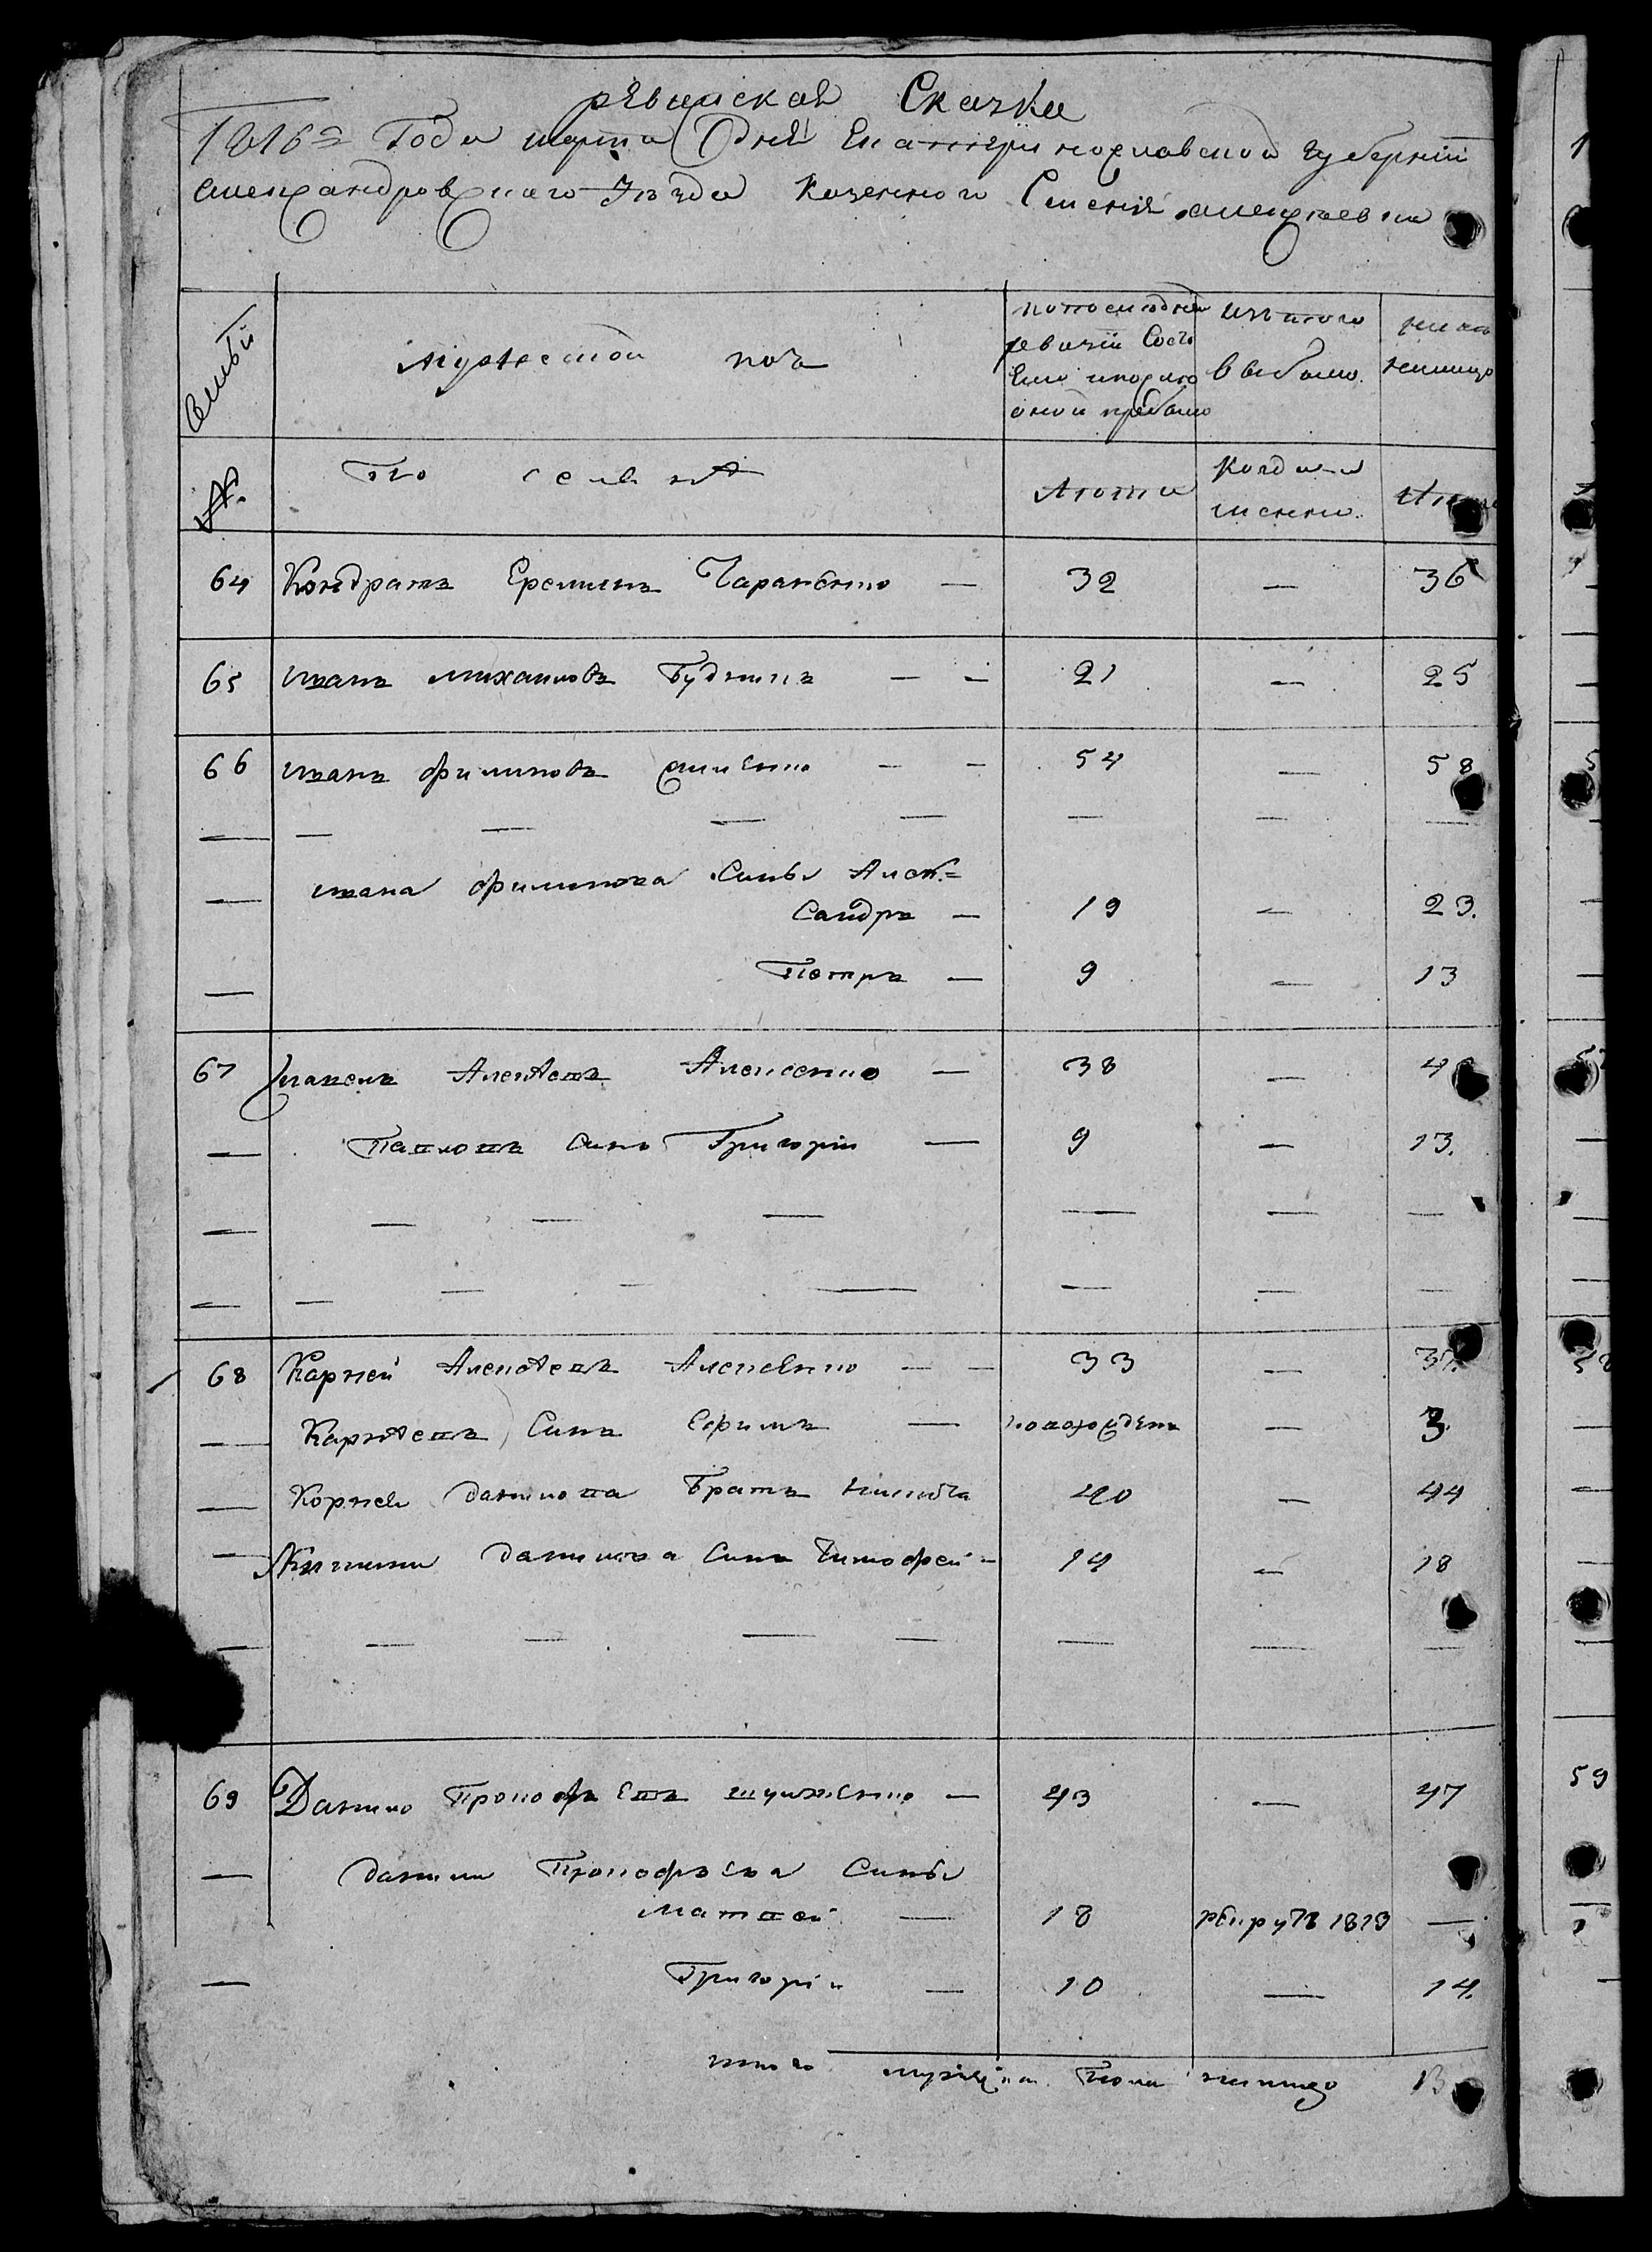 ревизская Сказка
1816го Года марта дня Екатеринославской губернии
александровского уезда Казенного Селения алексеевки
Семьи
Мужеской пол
по последней ревизии Состояло и после оной прибыло
Из того выбыло
ныне налицо
№
Лета
Когда именно
Лета
64 Кондратъ Еремин Тараненко — 32 — 36
65 иванъ михаиловъ Будник — — 21 — 25
66 иванъ филиповъ — — 54 — 58
— — — — — — — —
— ивана филипова Сины Алек=
сандръ — 19 — 23.
— Петръ — 9 — 13
67 павелъ Алексеевъ Алексенко — 38 — 4
— Павловъ Синъ Григорий — 9 — 13.
— — — — — — —
— — — — — — — —
68 Карней Алексеевъ Алексенко — — 33 — 37.
— Карнеевъ Синъ Ефимъ — новорожденъ — 3.
— Корнея данилова Братъ никита 40 — 44
— Никити данилова Синъ Тимофей — 14 — 18
— — — — — — — —
69 Данило Прокофъевъ — 43 — 47
— данила Прокофъева Сины
матвей — 18 рекрутъ 1813 —
— Григорий — 10 — 14.
итого мужеска Пола налицо 13
1
59